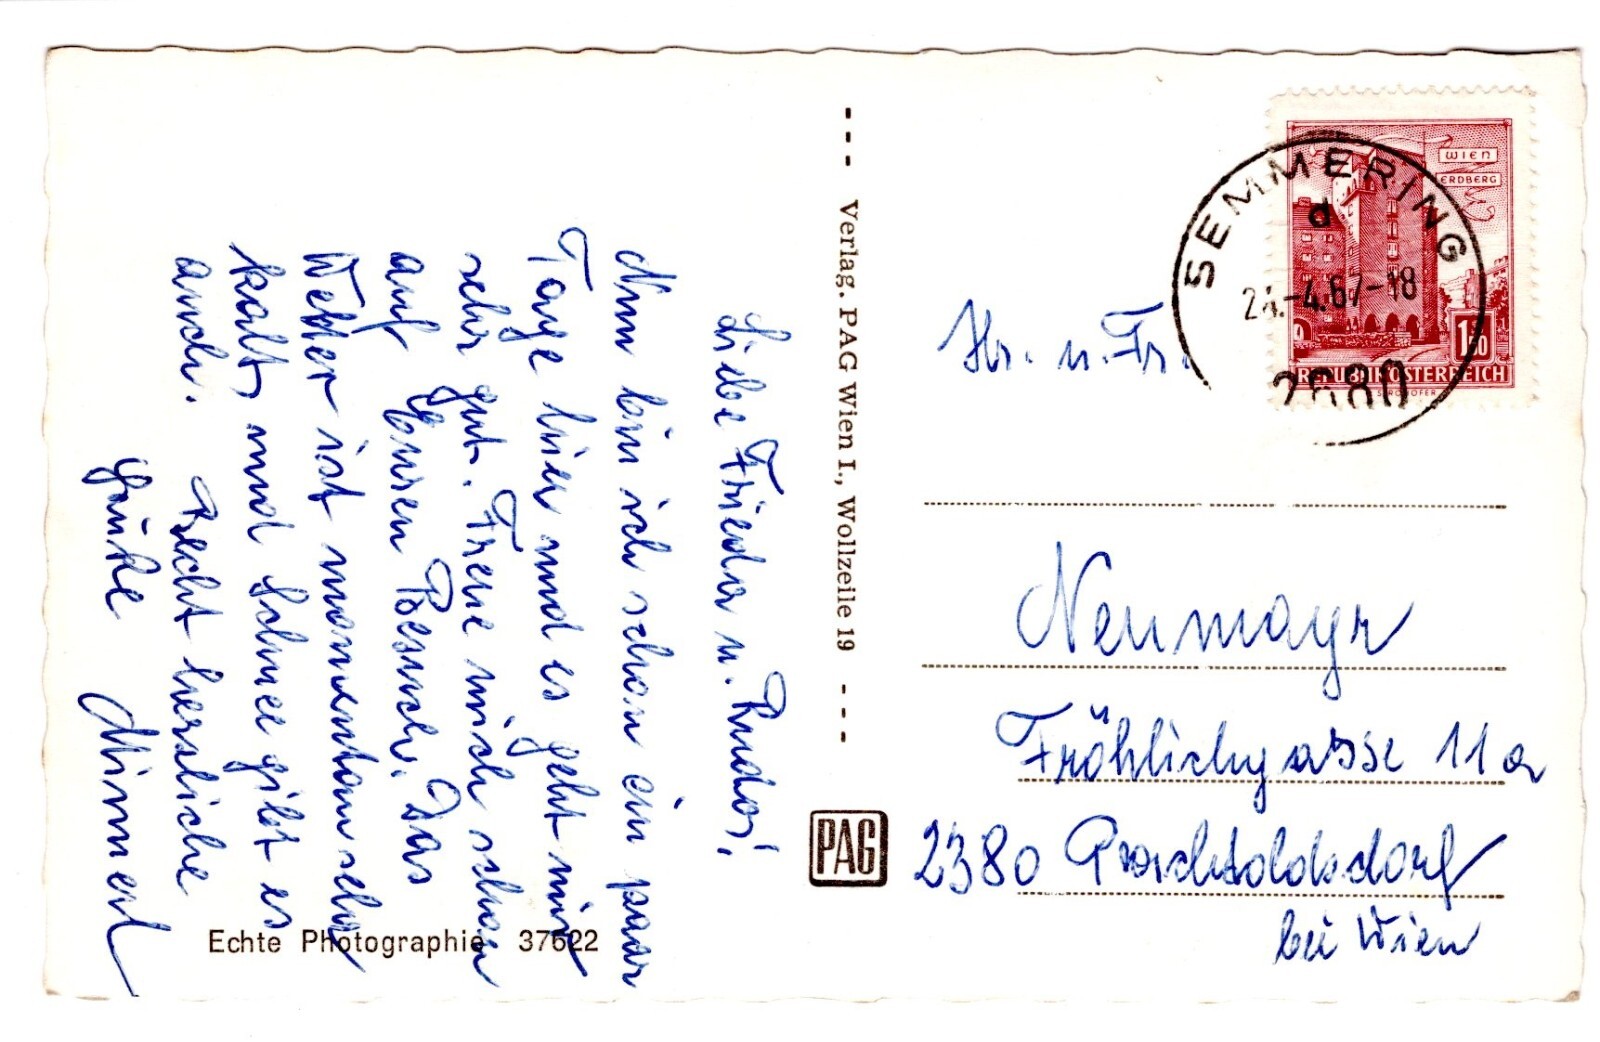 Liebe Frieda u. Rudo!
Nun bin ich schon ein paar
Tage hier und es geht mir
sehr gut. Freue mich schon
auf Euren Besuch. Das
Wetter ist momentan sehr
kalt und Schnee gibt es
auch. Recht herzliche
Grüße
Minnerl
Echte Photographie 37622
Verlag. PAG Wien I., Wollzeile 19
PAG
WIEN
ERDBERG
1.50
REPUBLIK ÖSTERREICH
SEMMERING
d
24.-4.67-18
2680
Hr. u. Fr.
Neumayr
Fröhlichgasse 11a
2380 Perchtoldsdorf
bei Wien